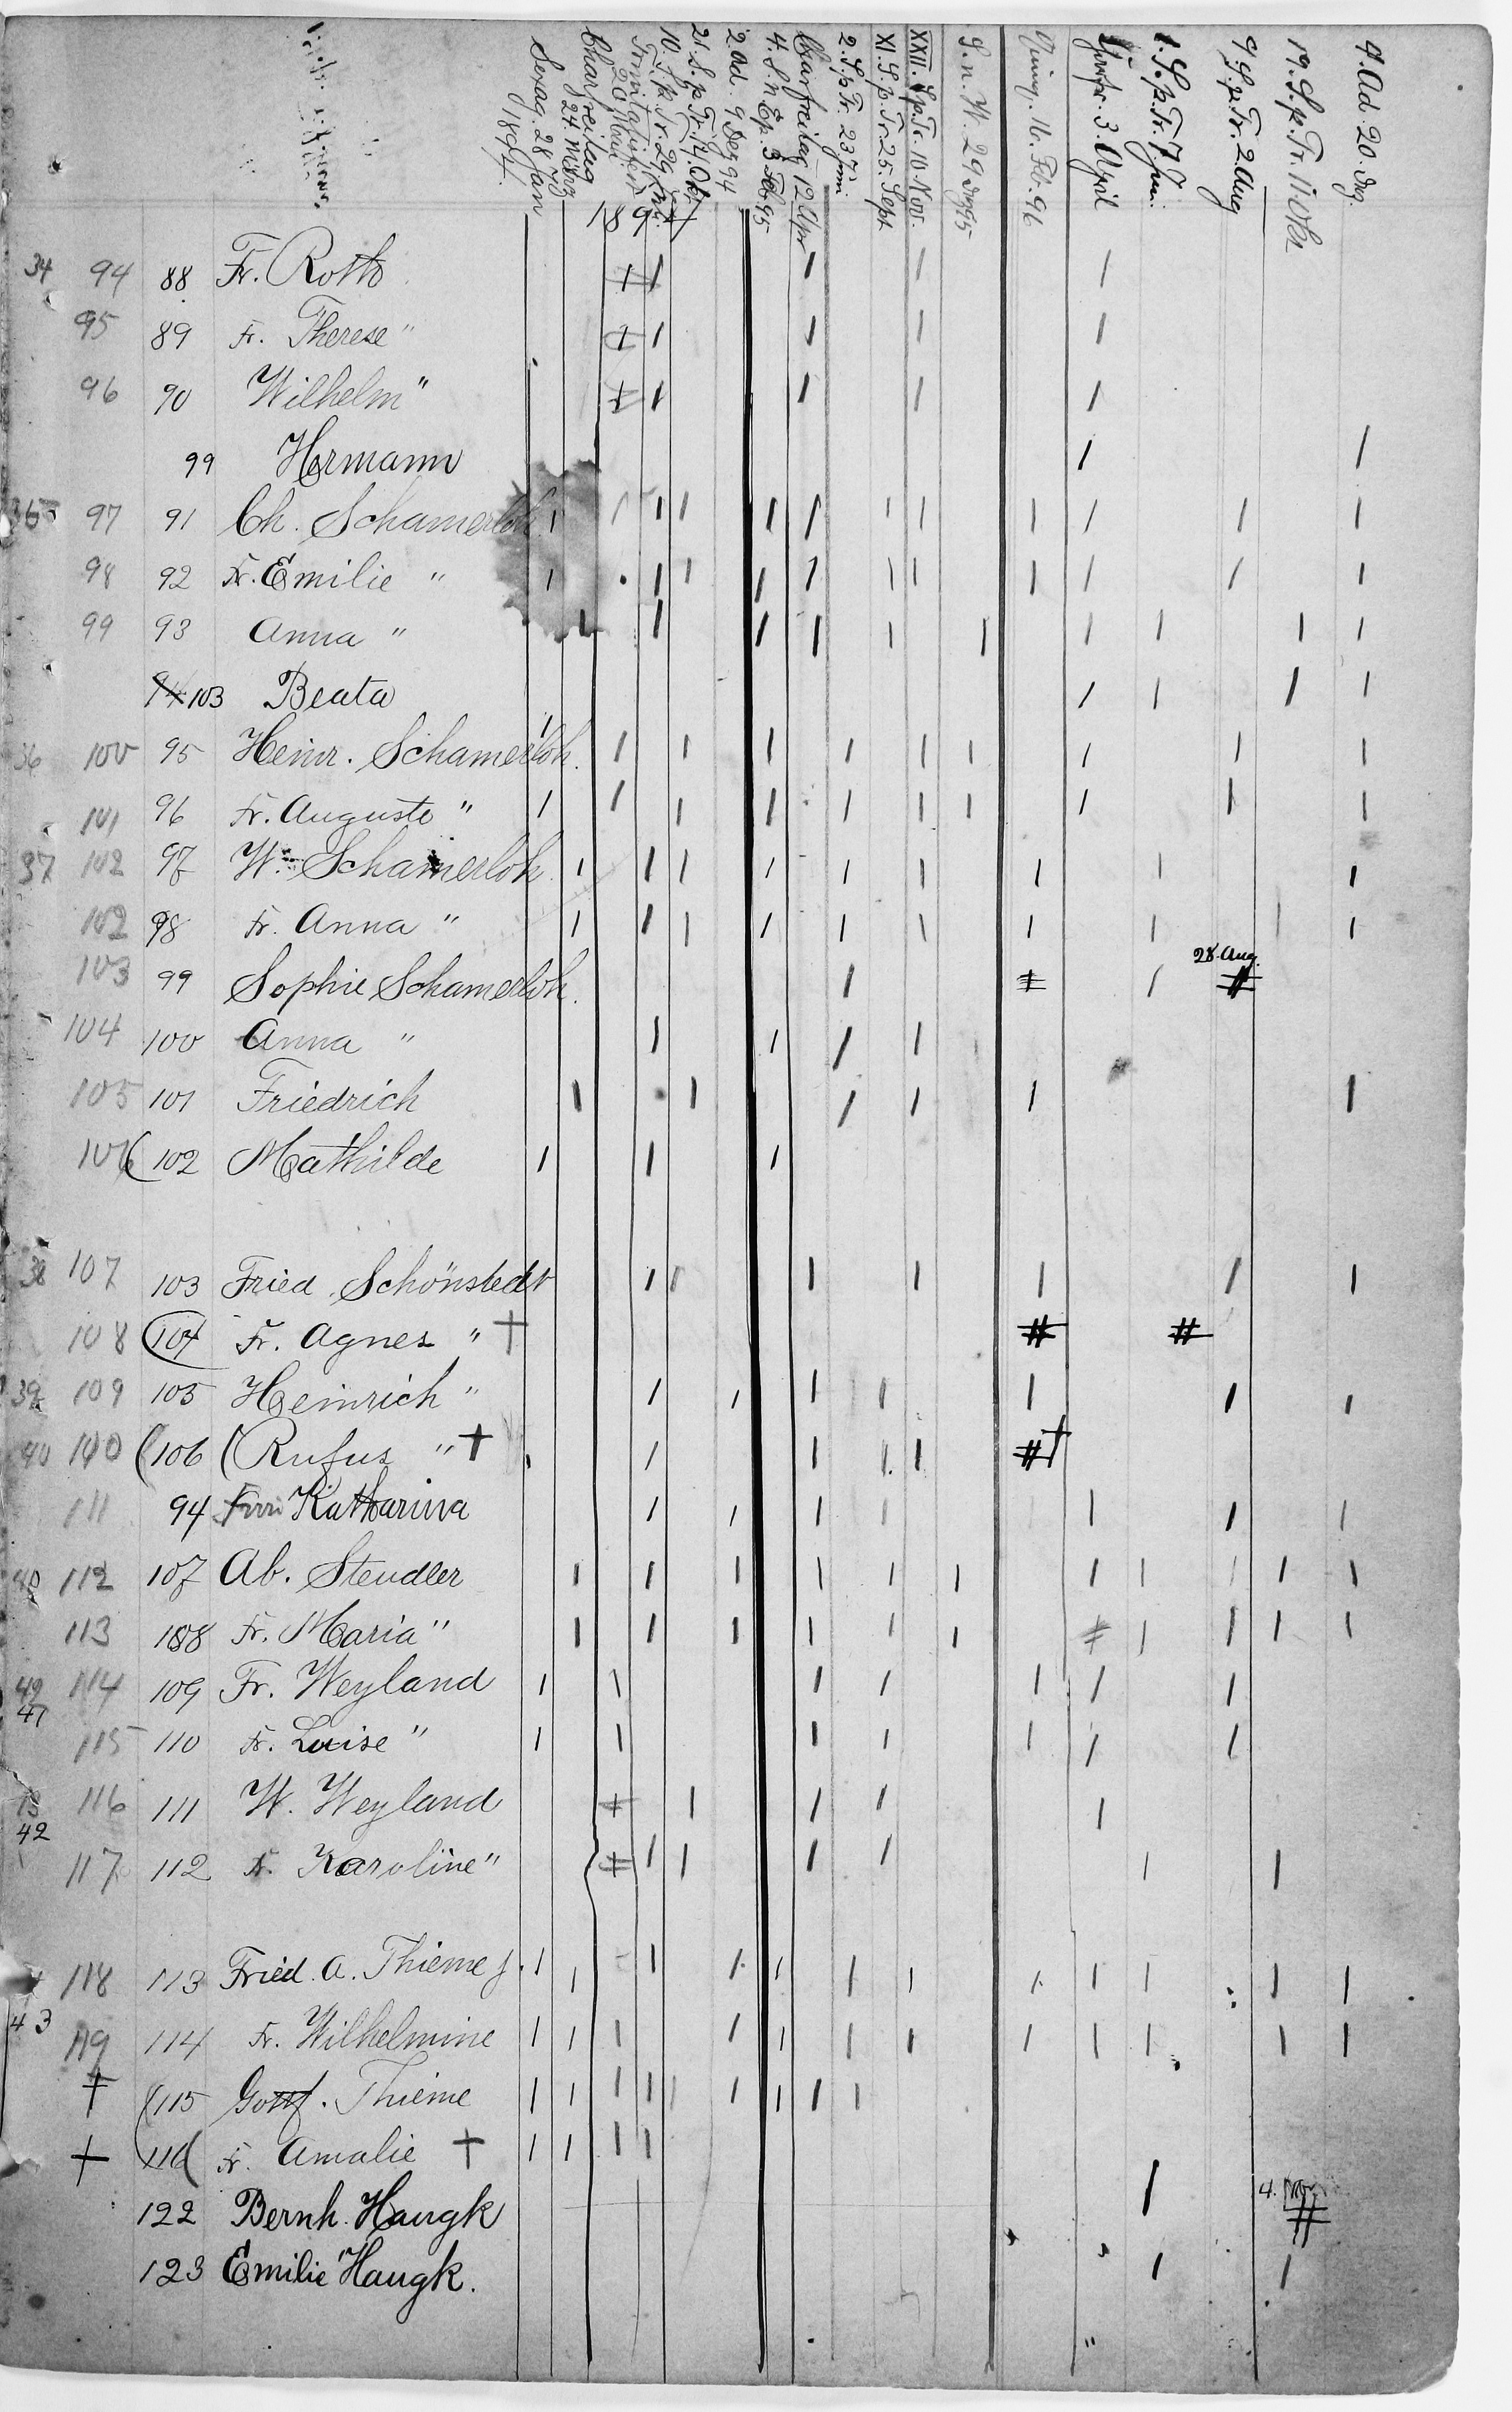 Sexag. 28 Jan 1894.
Charfreitag 24. März
Trinitatisfest 20 Mai
10. S. p. Tr. 29 Juli
21. S. p. Tr. 14. Okt
2 Ad. 9 Dez 94
4. S. n. Ep. 3 Feb 95
Charfreitag 12 Apr
2. S. p. Tr. 23 Juni
XI. S. p. Tr. 25. Sept
XXII. S. p. Tr. 10. Nov.
S. n. W. 29 Dez 95
Quinq. 16. Feb. 96
3. April
1. S. p. Tr. 7. Jun.
9. S. p. Tr. 2. Aug
19. S. p. Tr. 11 Okt
4. Ad. 20. Dez.
1894
34 94 88 Fr. Roth
95 89 Fr. Therese "
96 90 Wilhelm "
99 Hermann
35 97 91 Ch. Schamerloh
98 92 Fr. Emilie "
99 93 Anna "
94 103 Beata
36 100 95 Heinr. Schamerloh.
101 96 Fr. Auguste "
37 102 97 Wm Schamerloh.
102 98 Fr. Anna "
28. Aug.
103 99 Sophie Schamerloh.
104 100 Anna "
105 101 Friedrich
106 (102 Mathilde
38 107 103 Fried. Schönstedt
108 (104 Fr. Agnes " †
39 109 105 Heinrich "
40 110 (106 (Rufus " †
111 94 Frau Katharina
40 112 107 Ab. Steudler
113 108 Fr. Maria "
42 114 109 Fr. Weyland
41
115 110 Fr. Luise "
43 116 111 W. Weyland
42
117 112 Fr. Karoline "
118 113 Fried. A. Thieme j.
43
119 114 Fr. Wilhelmine
† (115 Gottf. Thieme
† 116( Fr. Amalie †
122 Bernh. Haugk 4. Nov
123 Emilie Haugk.